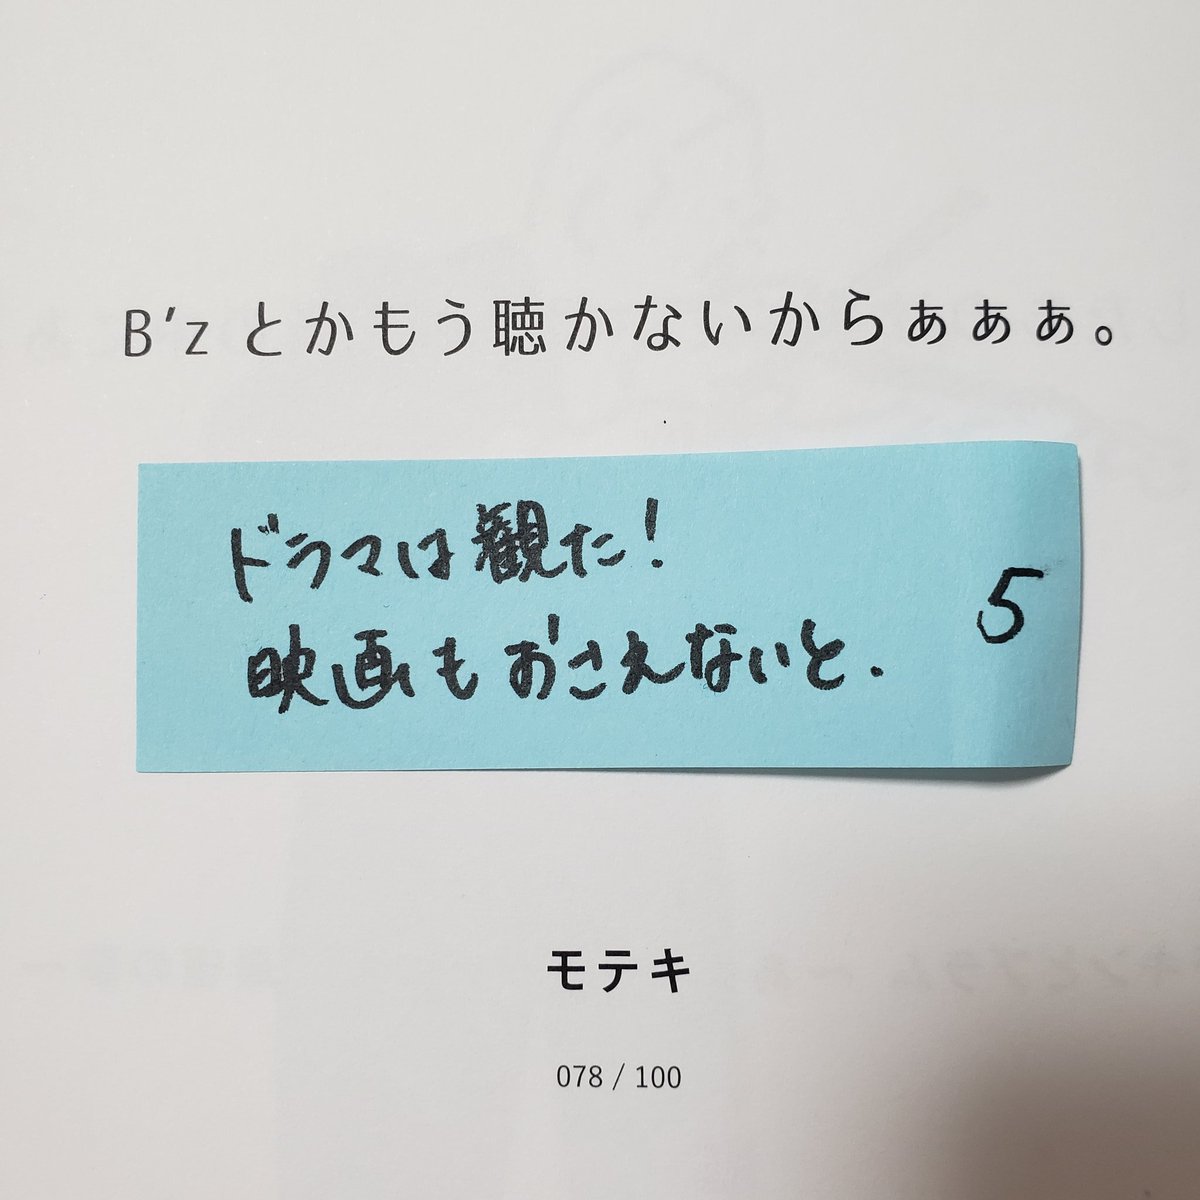 B'zとかもう聴かないからぁぁぁ。
ドラマは観た!
映画もおさえないと.
5
モテキ
078 / 100